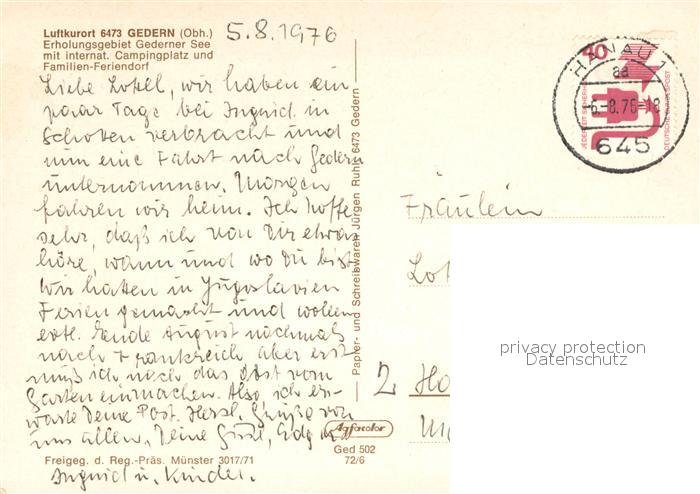 Luftkurort 6473 GEDERN (Obh.)
Erholungsgebiet Gederner See
mit internat. Campingplatz und
Familien-Feriendorf
5.8.1976
Liebe Lotel, wir haben ein
paar Tage bei Ingrid in
Schotten verbracht und
nun eine Fahrt nach Gedern
unternommen. Morgen
fahren wir heim. Ich hoffe
sehr, daß ich von Dir etwas
höre, wann und wo Du bist
Wir hatten in Jugoslavien
Ferien gemacht und wollen
evtl. Ende August nochmals
nach Frankreich aber erst
muß ich noch das Obst vom
Garten einmachen. Also, ich er-
warte Deine Post. Herzl. Grüße von
uns allen, Deine
Ingrid u. Kinder.
Freigeg. d. Reg.-Präs. Münster 3017/71
Agfacolor
Ged 502
72/6
Papier- und Schreibwaren Jürgen Ruhl 6473 Gedern
HANAU 1
aa
-6.-8.76-18
645
40
JEDERZEIT SICHERHEIT
DEUTSCHE BUNDESPOST
Fräulein
Lot
2 Ha
privacy protection
Datenschutz